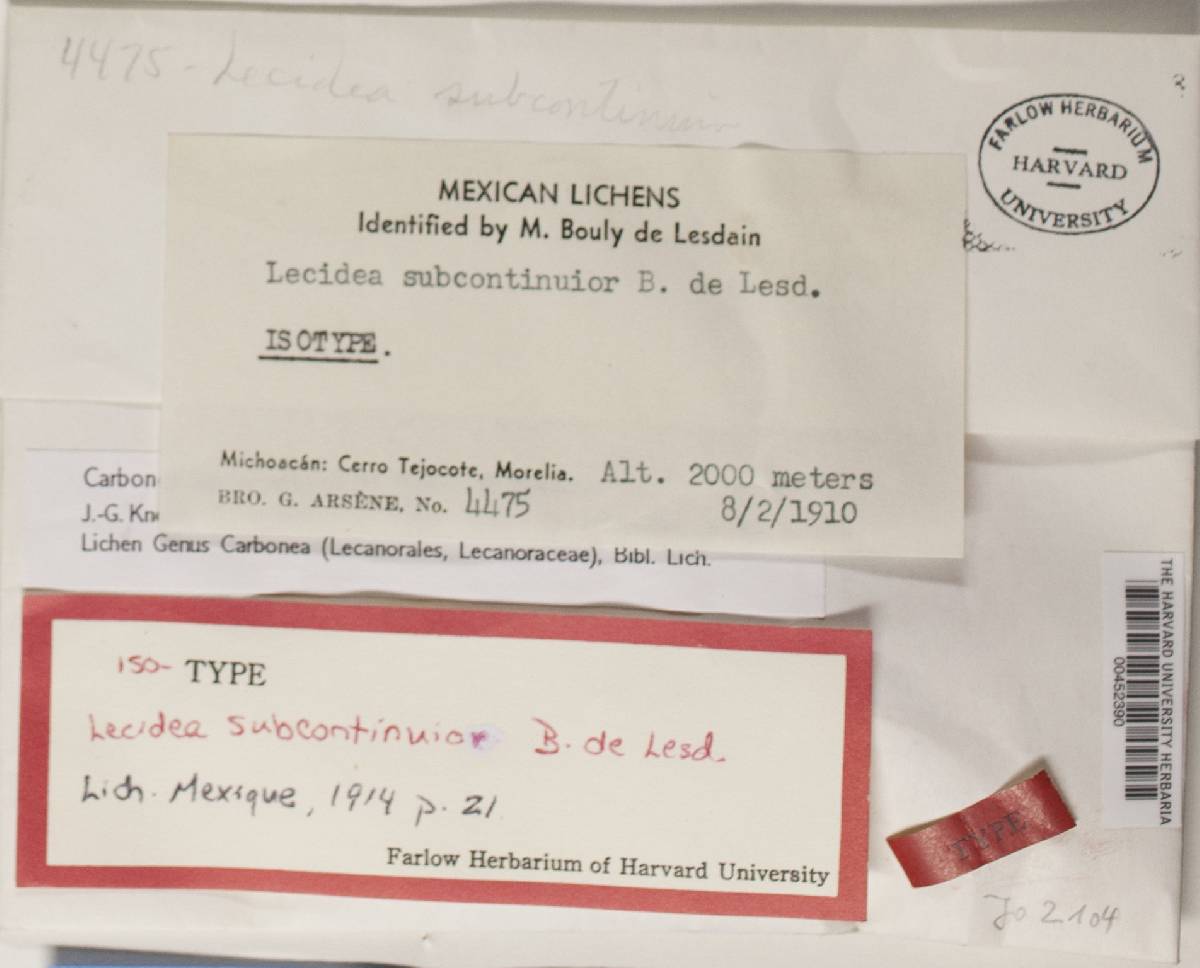 4475 - Lecidea subcontinuior
FARLOW HERBARIUM
HARVARD
UNIVERSITY
MEXICAN LICHENS
Identified by M. Bouly de Lesdain
Lecidea subcontinuior B. de Lesd.
ISOTYPE.
Michoacán: Cerro Tejocote, Morelia. Alt. 2000 meters
BRO. G. ARSÈNE, No. 4475 8/2/1910
Carbon
J.-G. Kn
Lichen Genus Carbonea (Lecanorales, Lecanoraceae), Bibl. Lich.
THE HARVARD UNIVERSITY HERBARIA
00452390
iso- TYPE
Lecidea subcontinuior B. de Lesd.
Lich. Mexique, 1914 p. 21
Farlow Herbarium of Harvard University
TYPE
Jo 2104